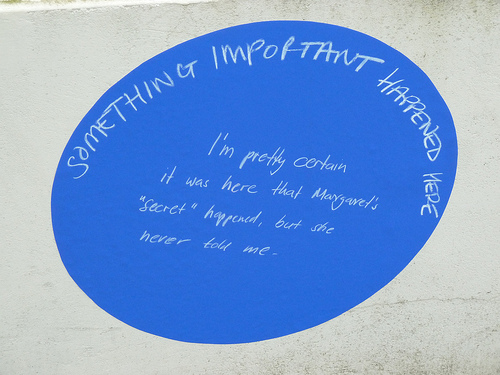 SOMETHING IMPORTANT HAPPENED HERE
I'm pretty certain
it was here that Margaret's
"secret" happened, but she
never told me.